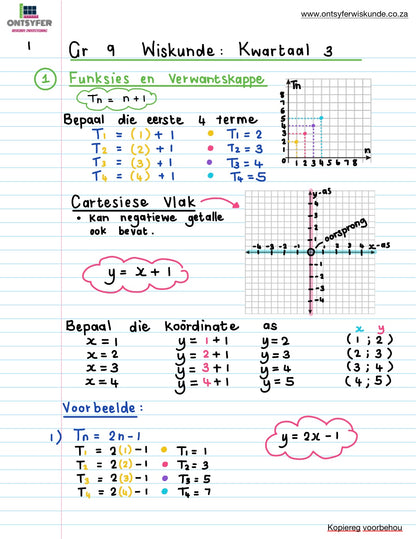 ONTSYFER
www.ontsyferwiskunde.co.za
1 Gr 9 Wiskunde: Kwartaal 3
1 Funksies en Verwantskappe
Tn = n+1
Bepaal die eerste 4 terme
T1 = (1) + 1 • T1 = 2
T2 = (2) + 1 • T2 = 3
T3 = (3) + 1 • T3 = 4
T4 = (4) + 1 • T4 = 5
Tn
8
7
6
5
4
3
2
1
1 2 3 4 5 6 7 8
n
Cartesiese Vlak
• Kan negatiewe getalle
ook bevat.
y = x + 1
y-as
4
3
2
1
oorsprong
-4 -3 -2 -1 1 2 3 4 x-as
-1
-2
-3
-4
Bepaal die koördinate as
x y
x = 1 y = 1 + 1 y = 2 (1 ; 2)
x = 2 y = 2 + 1 y = 3 (2 ; 3)
x = 3 y = 3 + 1 y = 4 (3 ; 4)
x = 4 y = 4 + 1 y = 5 (4 ; 5)
Voorbeelde:
1) Tn = 2n-1
y = 2x - 1
T1 = 2(1) - 1 • T1 = 1
T2 = 2(2) - 1 • T2 = 3
T3 = 2(3) - 1 • T3 = 5
T4 = 2(4) - 1 • T4 = 7
Kopiereg voorbehou